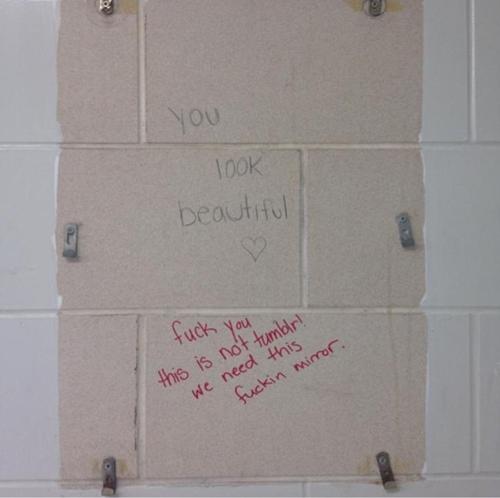 you
look
beautiful
♡
fuck you
this is not tumblr!
we need this
fuckin mirror.